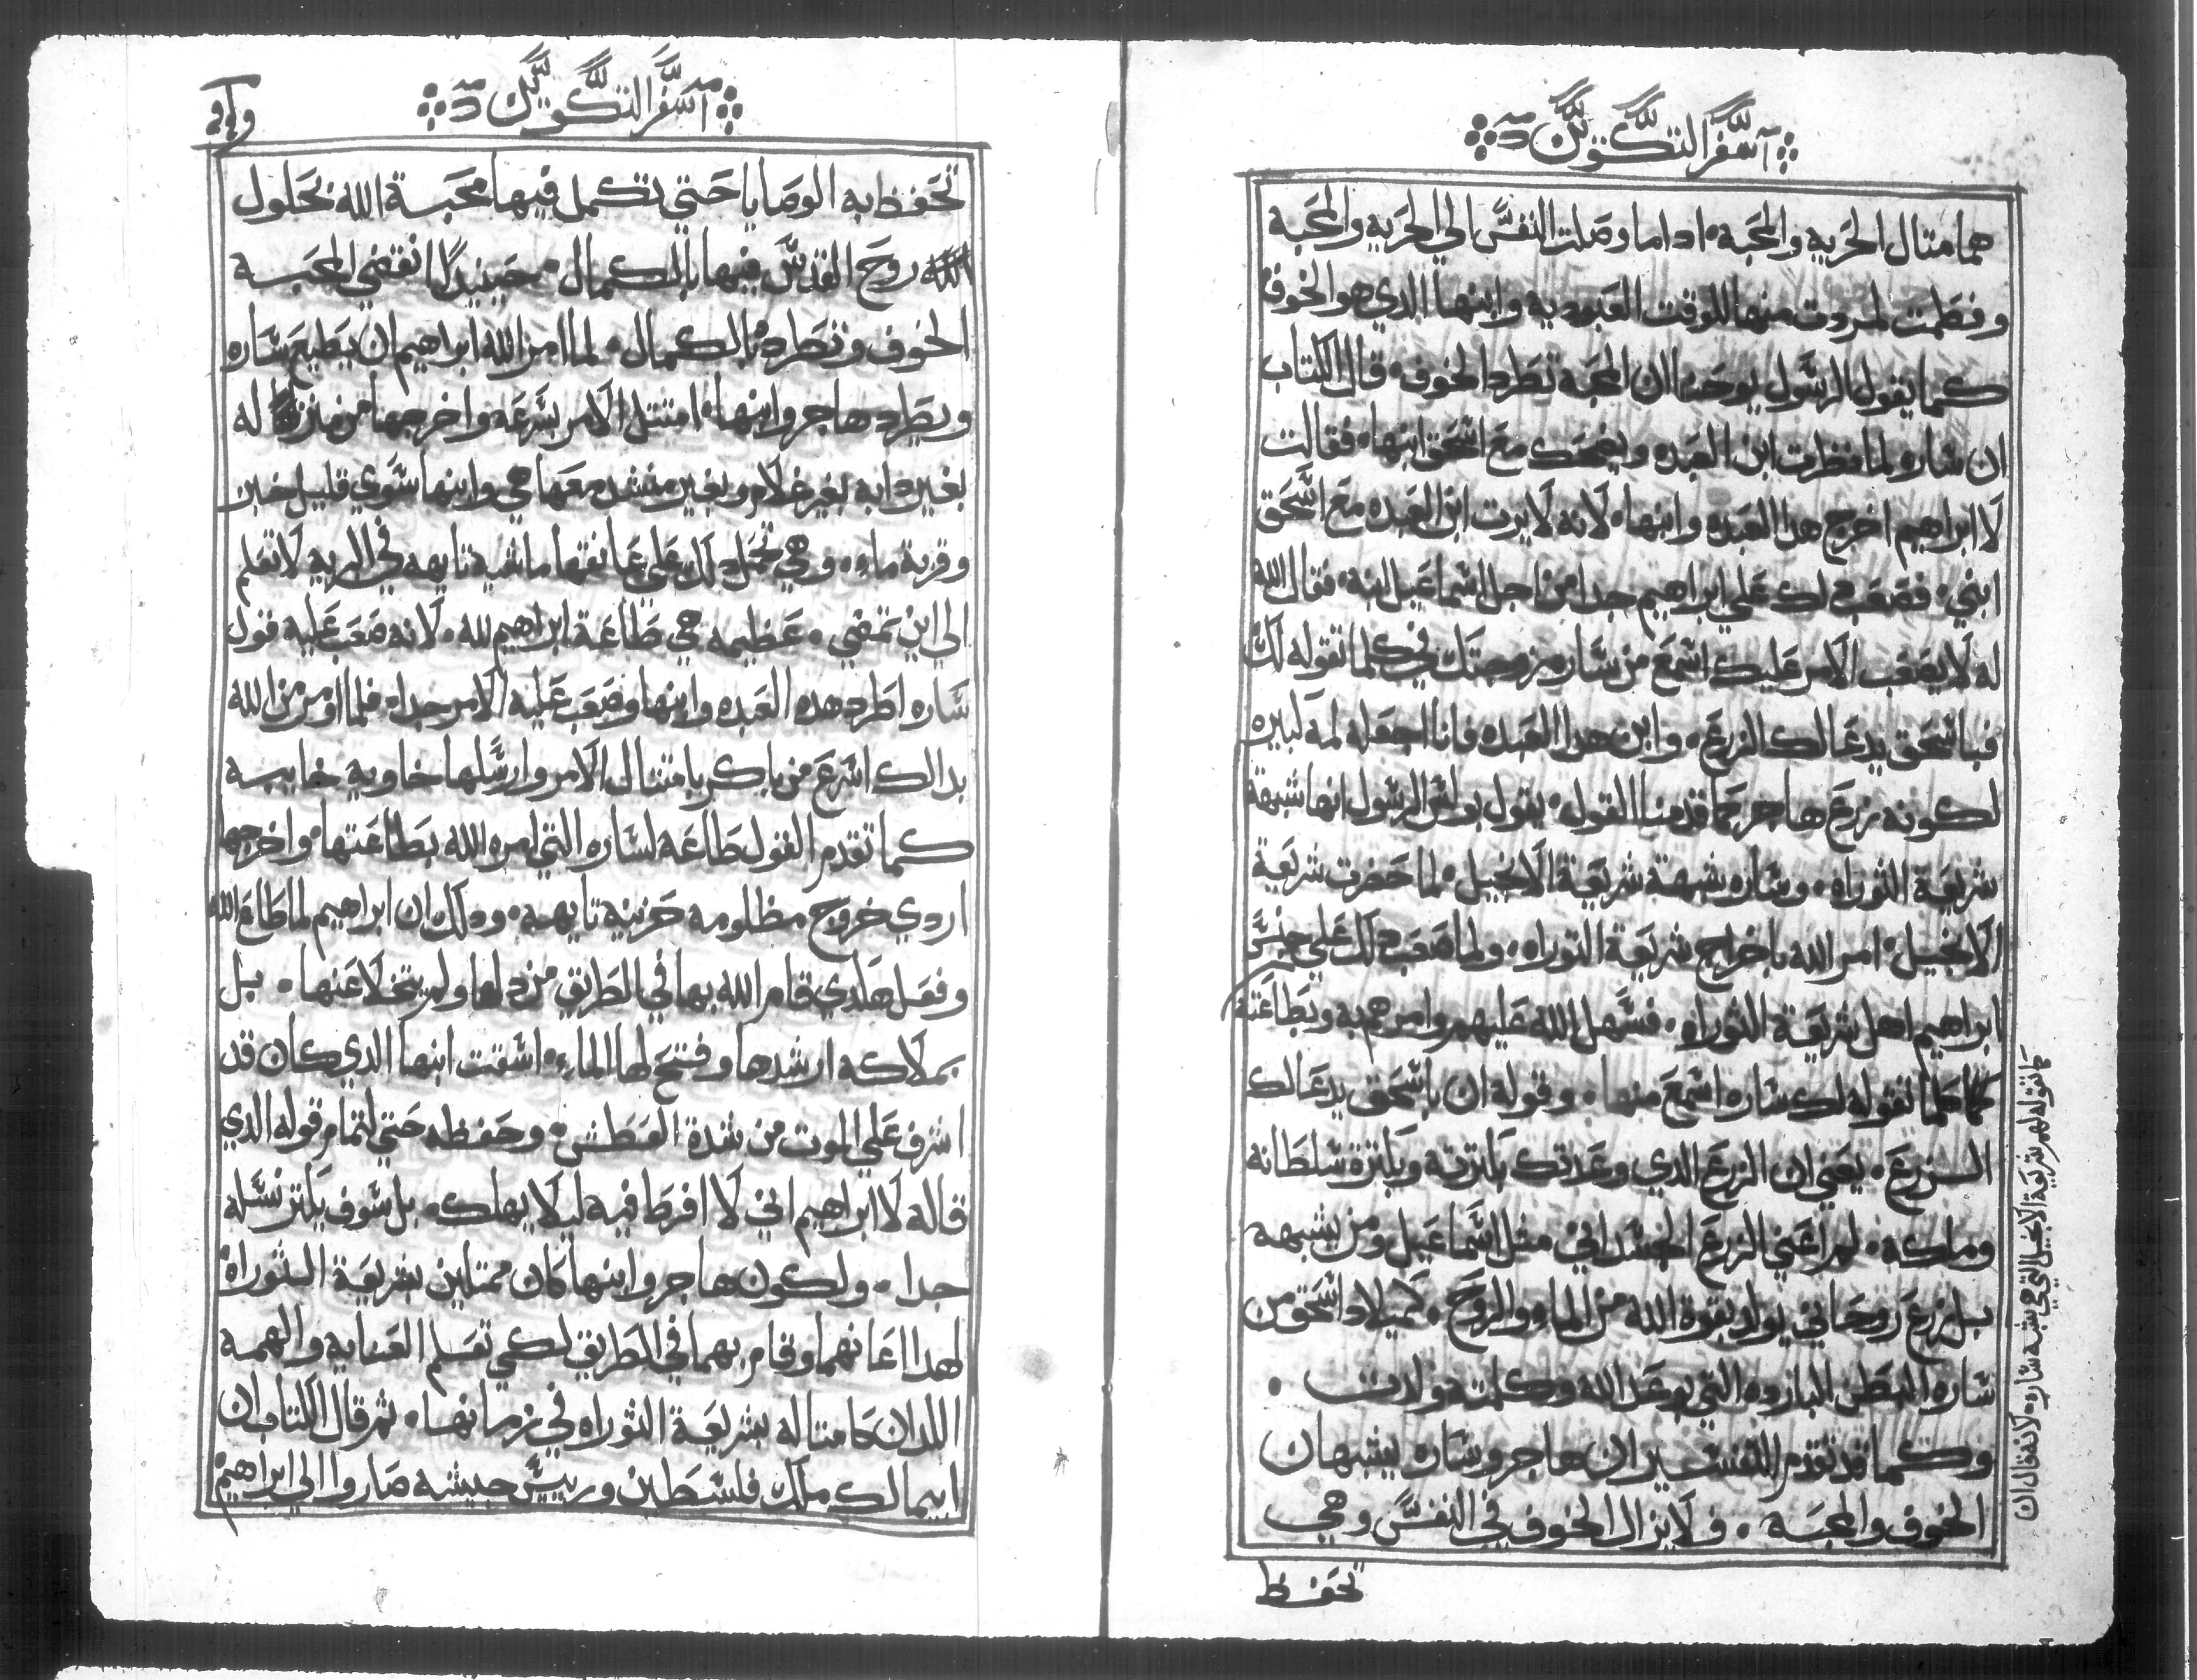 سفر التكوين
هما متال الحريه والمحبه، اداما وصلت النفس الي الحريه والمحبه
وفطمت لمروت منها للوقت العبوديه وابنها الدي هو الخوف
كما يقول الرسول يوحنا ان المحبه تطرد الخوف، قال الكتاب
ان ساره لما نظرت ابن العبده وليضحك مع اسحق ابنها، فقالت
لا ابراهيم اخرج هدا العبده وابنها، لانه لا يرت ابن العبده مع اسحق
ابني، فصعب دلك علي ابراهيم جدا من اجل اسماعيل ابنه، فقال الله
له لا يصعب الامر عليك اسمع من ساره زوجتك في كلما تقوله لك
فباسحق يدعا لك الزرع، وابن هدا العبده فانا اجعله لمه كبيره
لكونه زرع هاجر كما قدمنا القول، يقول بولس الرسول انها شبهة
شريعة التوراه، وساره شبهة شريعة الانجيل، لما حضرت شريعة
الانجيل، امر الله باخراج شريعة التوراه، ولما صعب دلك علي جنس
ابراهيم اهل شريعة التوراه، فسهل الله عليهم وامرهم به وبطاعته
كما كلما تقوله لك ساره اسمع منها، وقوله ان باسحق يدعا لك
الزرع، يعني ان الزرع الدي وعدتك بكترته وبكترة سلطانه
وملكه، لم اعني الزرع الجسداني متل اسماعيل ومن يشبهه
بل زرع روحاني يولد بقوة الله من الماء والروح، كميلاد اسحق من
ساره البطن البارده التي بوعد الله وكلمته ولدت،
وكما قد تقدم التفسير ان هاجر وساره يشبهان
الخوف والمحبه، فلا يزال الخوف في النفس وهي
تحفظ
كما تقوله لهم شريعة الانجيل التي هي شبه ساره لانه قال ان
سفر التكوين
تحفظ به الوصايا حتي تكمل فيها محبة الله بحلول
روح القدس فيها بالكمال، حينيدا تقضي المحبه
الخوف وتطرده بالكمال، لما امر الله ابراهيم ان يطيع ساره
ويطرد هاجر وابنها، امتتل الامر بسرعه واخرجها من منزله
بغير دابه بغير غلام وبغير منشد معها هي وابنها سوي قليل خبز
وقربة ماء، وهي تحمل دلك علي عاتقها ماشيه تايهه في البريه لا تعلم
الي اين تمضي، عظيمه هي طاعة ابراهيم لله، لانه صعب عليه قول
ساره اطرد هده العبده وابنها وصعب عليه الامر جدا، فلما اومر من الله
بدالك اسرع من باكر بامتتال الامر وارسلها خاويه خايبه
كما تقدم القول طاعه لساره التي امره الله بطاعتها، واخرجها
اردي خروج مظلومه حزينه تايهه، ودلك ان ابراهيم لما طاع الله
وفعل هكدي قام الله بها في الطريق من دلها ولم يتخلا عنها، بل
بملاكه ارشدها وفتح لها الماء، اسقت ابنها الدي كان قد
اشرف علي الموت من شدة العطش، وحفظه حتي لتمام قوله الدي
قاله لا ابراهيم اني لا افرط فيه ليلا يهلك، بل سوف يكتر نسله
جدا، ولكون هاجر وابنها كان ممتلين بشريعة التوراه
لهدا اعانهما وقام بهما في الطريق لكي تعلم العنايه والهمه
اللدان كامتاله بشريعة التوراه في زمانها، تم قال الكتاب ان
ابيمالك ملك فلسطين وربيس جيشه صاروا الي ابراهيم